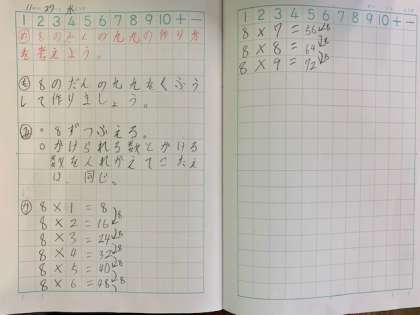 11 27 水
1 2 3 4 5 6 7 8 9 10 + −
め 8のだんの九九の作り方
を考えよう。
も 8のだんの九九をくふう
して作りましょう。
み ○8ずつふえる。
○かけられる数とかける
数を入れかえてこたえ
は、同じ。
8 × 1 = 8
8 × 2 = 16
8 × 3 = 24
8 × 4 = 32
8 × 5 = 40
8 × 6 = 48
8
8
8
8
8
8
1 2 3 4 5 6 7 8 9 10 + −
8 × 7 = 56
8 × 8 = 64
8 × 9 = 72
8
8
8